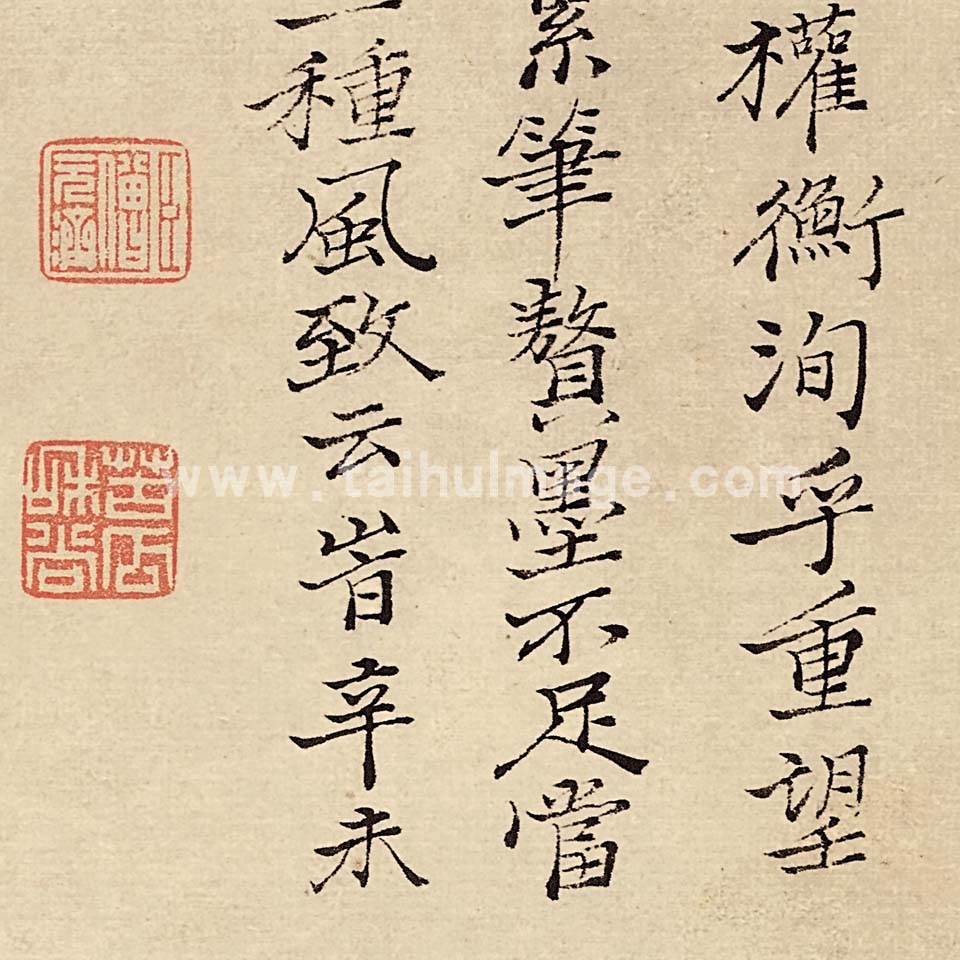 權衡洵孚重望
筆贅墨不足當
一種風致云旹辛未
www.taihuimage.com